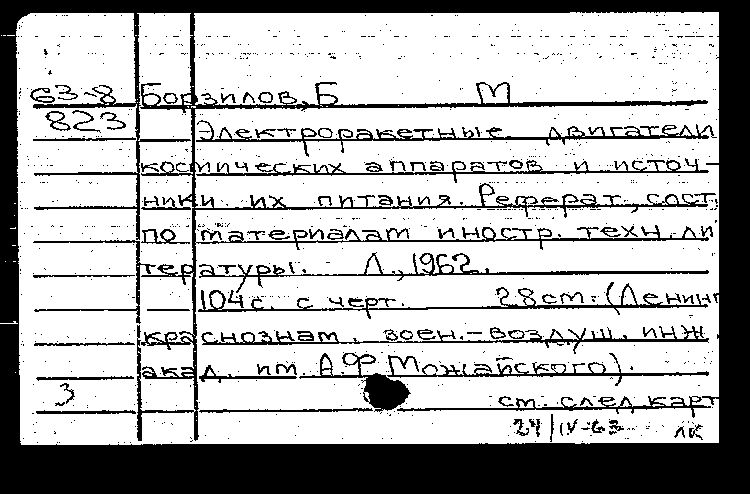 63-8 Борзилов, Б М
823 Электроракетные двигатели
космических аппаратов и источ-
ники их питания. Реферат, сост.
по материалам иностр. техн. ли
тературы. Л., 1962.
104 с. с черт. 28 см. (Ленинг
краснознам. воен.-воздуш. инж.
акад. им. А.Ф Можайского).
3 см. след. карт
24/IV-63 лк